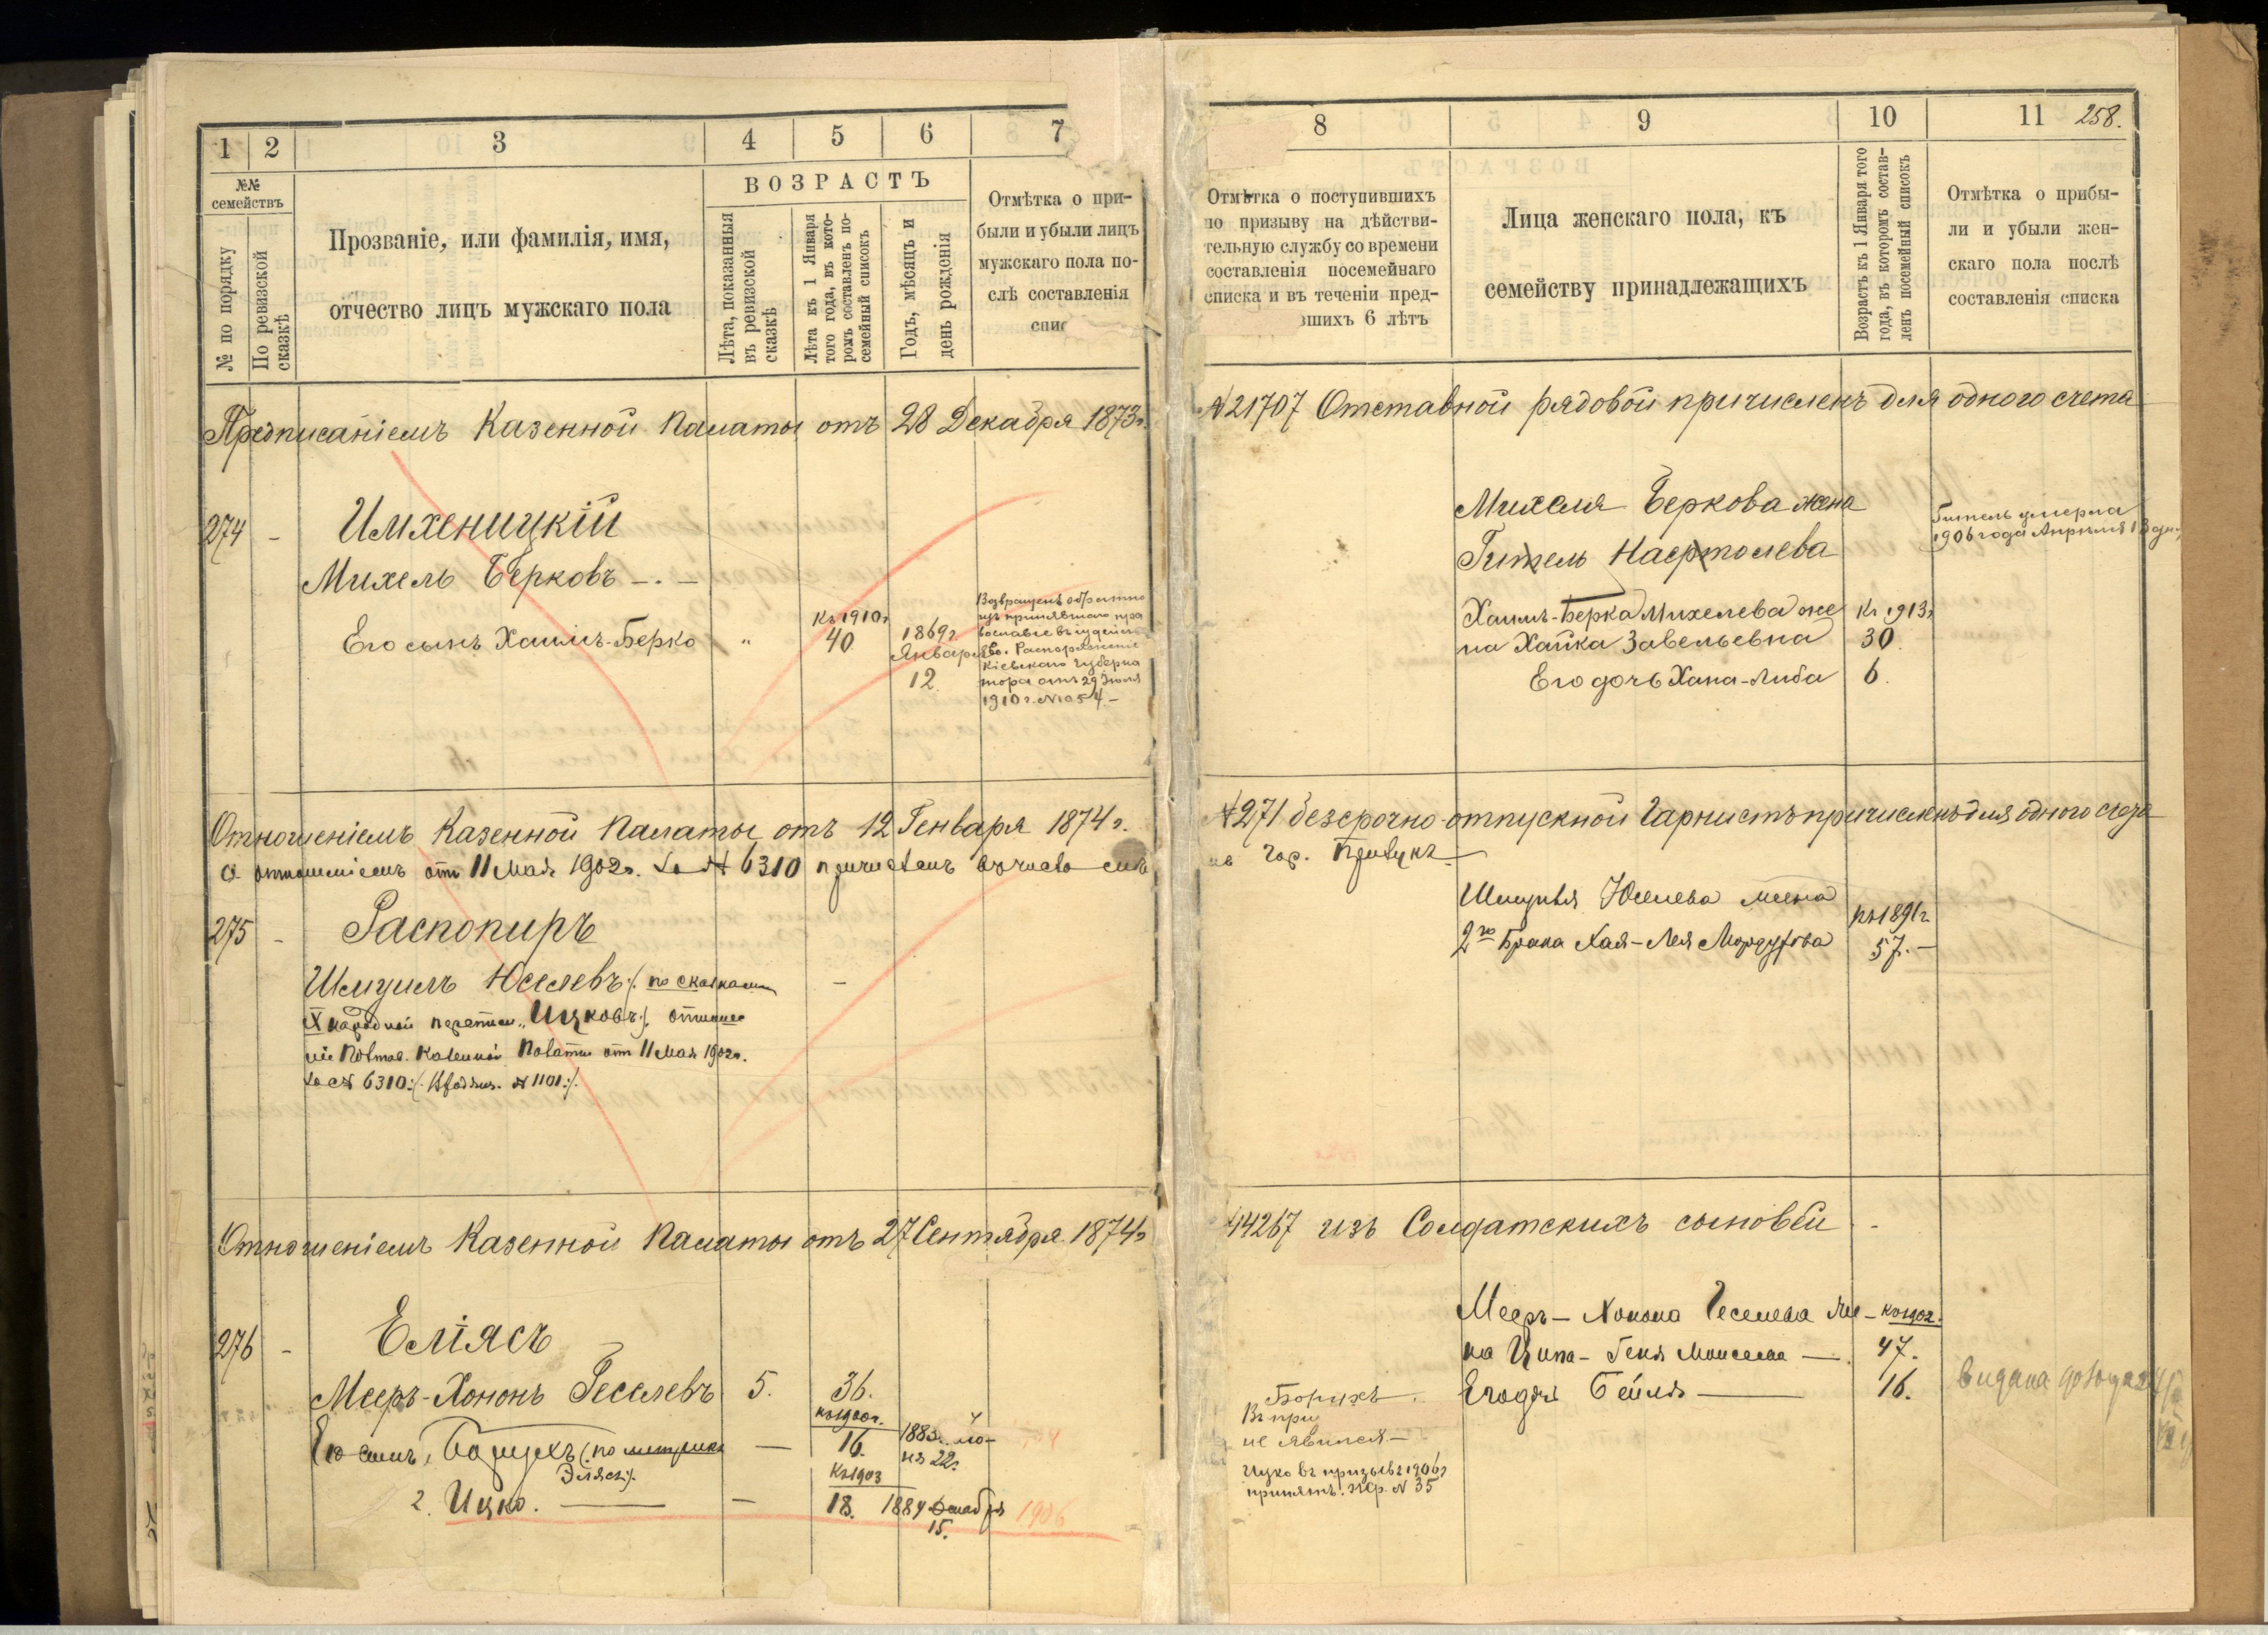 1 2 3 4 5 6 7
№№ семействъ
ВОЗРАСТЪ
№ по порядку
По ревизской сказкѣ
Прозваніе, или фамилія, имя,
отчество лицъ мужскаго пола
Лѣта, показанныя
въ ревизской
сказкѣ
Лѣта къ 1 Января
того года, въ кото-
ромъ составленъ по-
семейный списокъ
Годъ, мѣсяцъ и
день рожденія
Отмѣтка о при-
были и убыли лицъ
мужскаго пола по-
слѣ составленія
спис
Предписаніемъ Казенной Палаты отъ 28 Декабря 1873г.
274 -
Имхеницкій
Михель Берковъ -.-
Его сынъ Хаимъ-Берко " Къ 1910г 40 1869г Января 12
Возвращенъ обратно
изъ принявшаго пра
вославіе въ іудейс
во. Распоряженіе
Кіевскаго Губерна
тора отъ 29 Іюля
1910г. №1054-
Отношеніемъ Казенной Палаты отъ 12 Генваря 1874г.
а отношеніемъ отъ 11 Мая 1902г. за № 6310 причисленъ въ число
275 -
Распопиръ
Шмуилъ Юселевъ /: по сказкамъ -
X народной переписи "Ицковъ":/. отноше
ніе Полтав. Казенной Палаты отъ 11 Мая 1902г.
за № 6310:/. № 1101:/.
Отношеніемъ Казенной Палаты отъ 27 Сентября 1874г
276 -
Еліясъ
Мееръ-Хононъ Геселевъ 5. 36.
Его сынъ, Борухъ (: по метрикѣ — къ 1900г. 16. 1883г. Ію-
Эліясъ:/. ня 22.
2. Ицко. — — Къ 1903 18. 1884 Декабря 15. 1906
8 9 10 11 258.
Отмѣтка о поступившихъ
по призыву на дѣйстви-
тельную службу со времени
составленія посемейнаго
списка и въ теченіи пред-
шихъ 6 лѣтъ
Лица женскаго пола, къ
семейству принадлежащихъ
Возрастъ къ 1 Января того
года, въ которомъ состав-
ленъ посемейный списокъ
Отмѣтка о прибы-
ли и убыли жен-
скаго пола послѣ
составленія списка
№21707 Отставной рядовой причисленъ для одного счета
Михеля Беркова жена
Гитель Насртолева
Гитель умерла
1906 года Апрѣля 13 дня
Хаимъ-Берка Михелева же Къ 1913г
на Хайка Завельевна 30
Его дочь Хана-Либа 6.
№271 безсрочно-отпускной Гарнистъ причисленъ для одного счета
по гор. Прилукѣ
Шмуиля Юселева жена
2го брака Хая-Лея Мордухова къ 1891г 57.-
№4267 изъ Солдатскихъ сыновей -
Мееръ-Хонона Геселева же- къ 1902г.
на Ципа-Геня Моисеева — 47.
Его дочь Бейля — 16.
Борухъ
Въ при
не явился-
Ицко въ призывѣ 1906г
принятъ. Жр. № 35